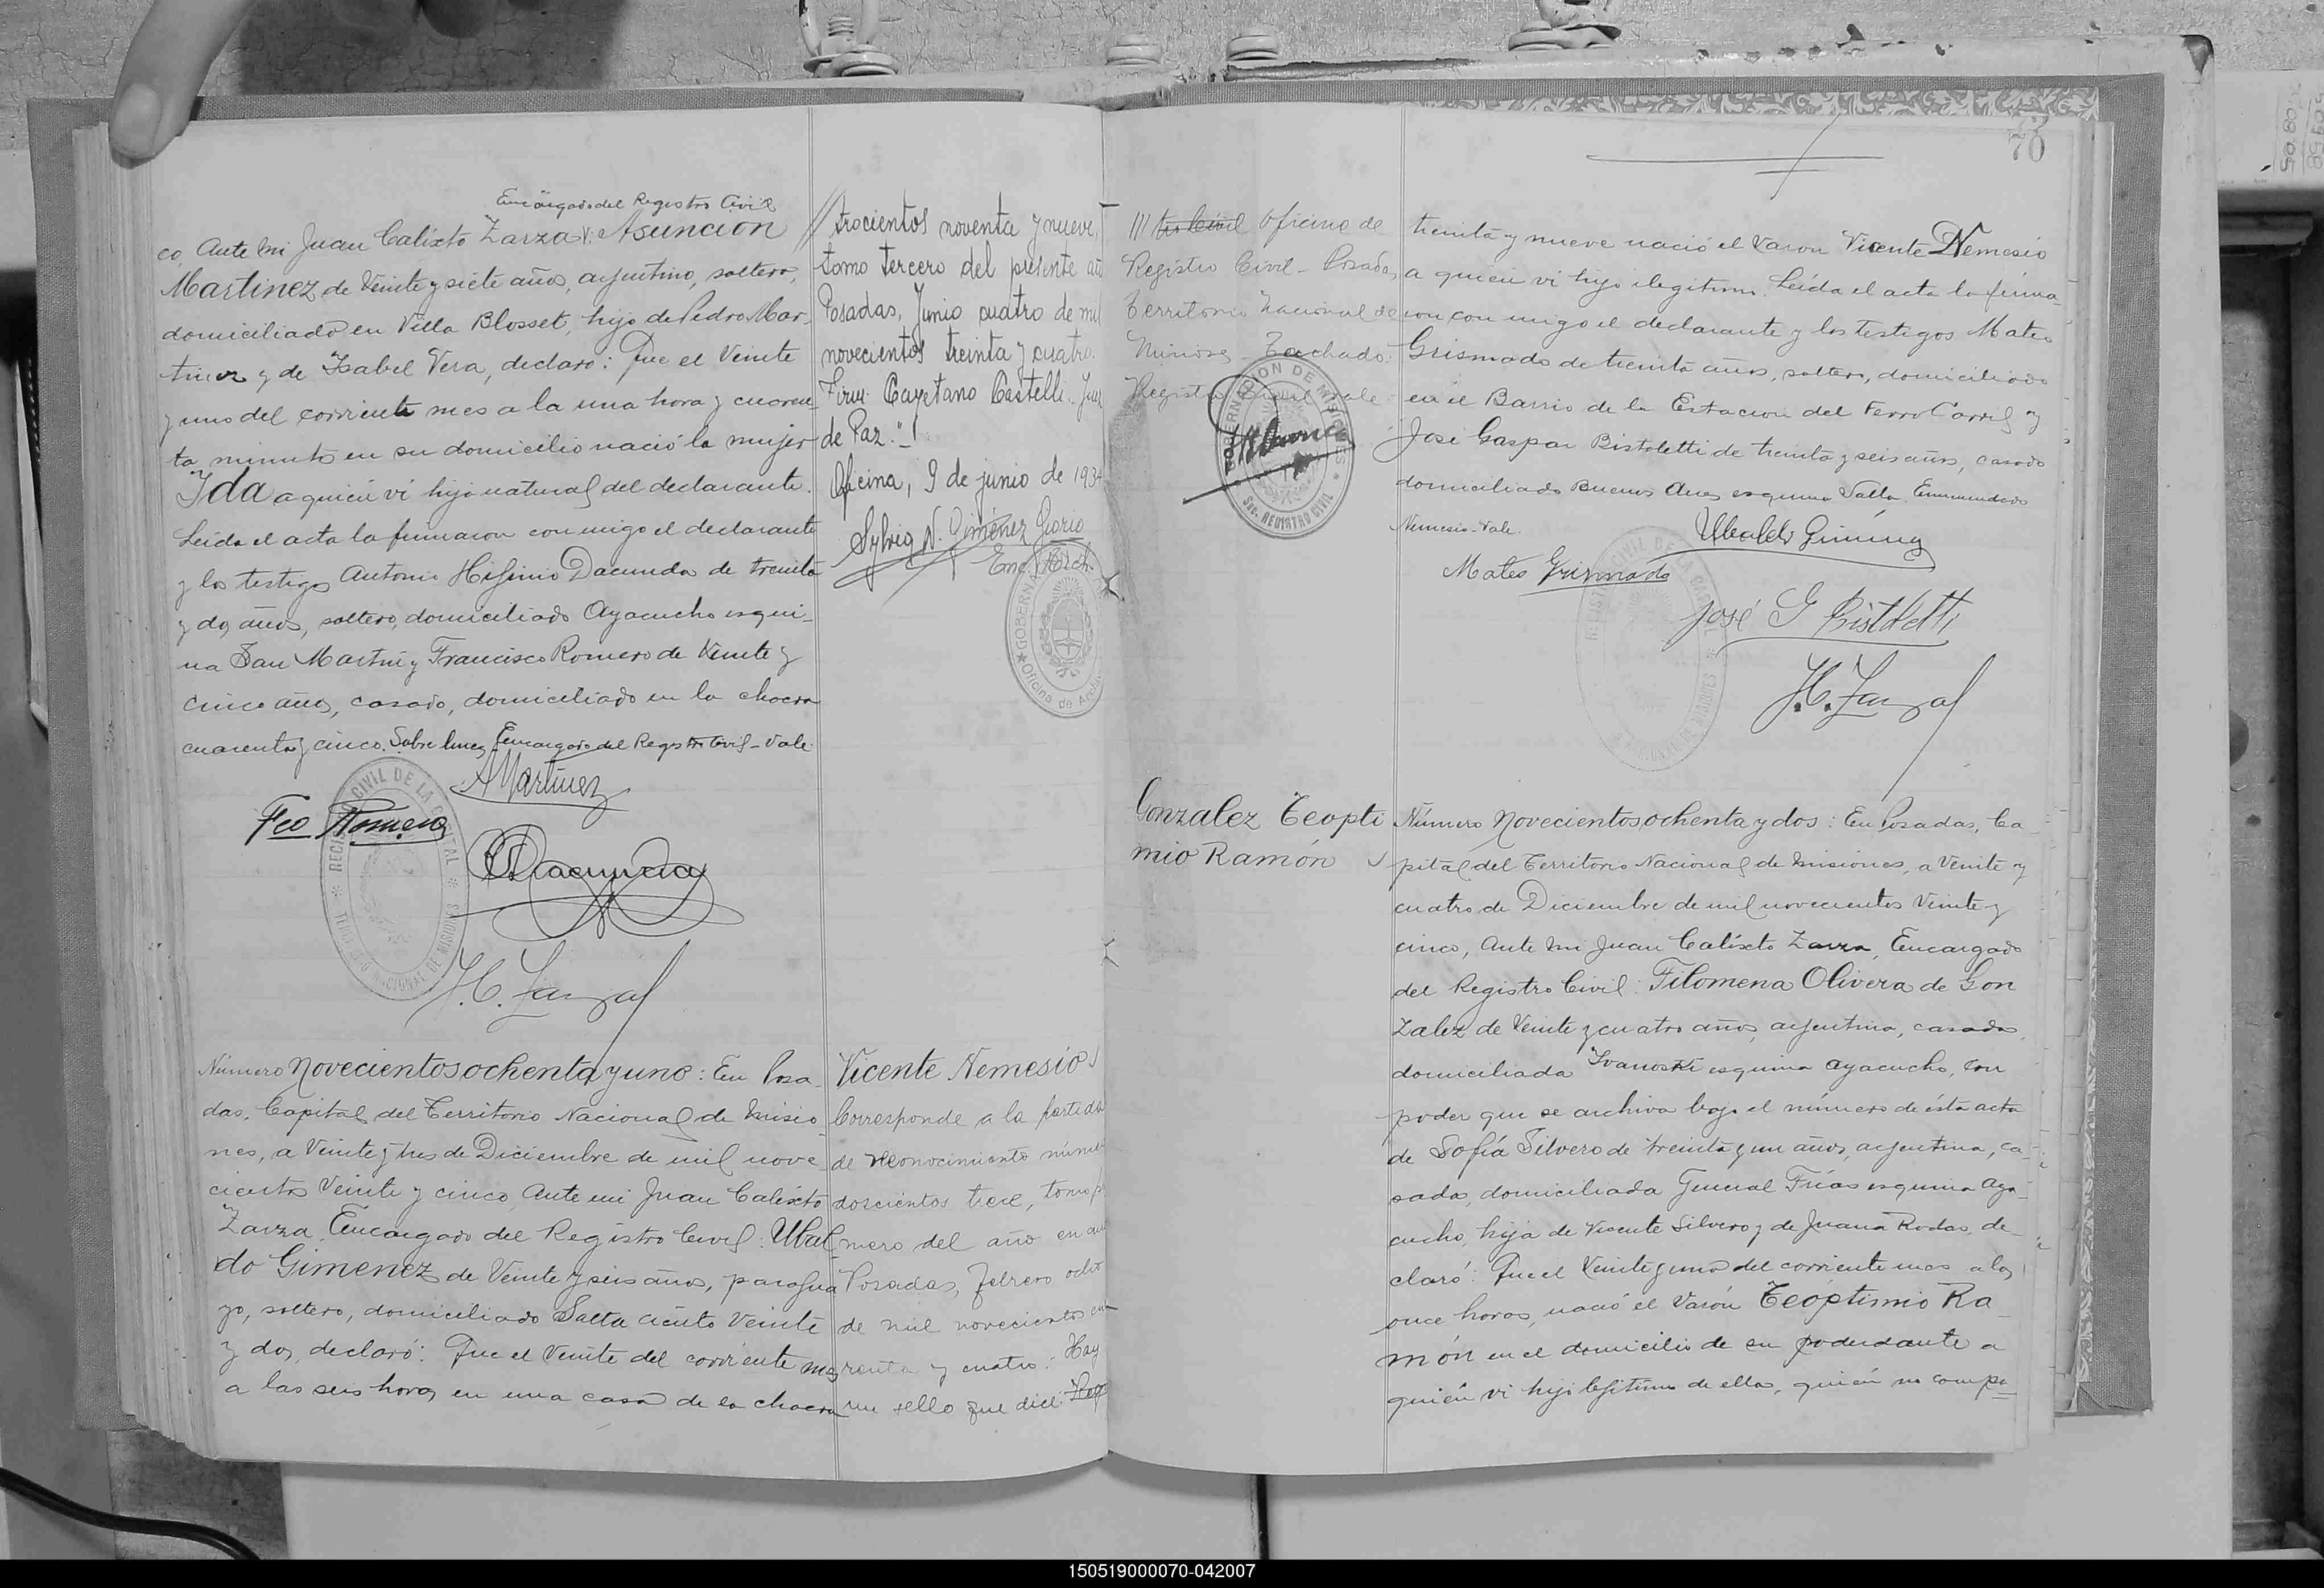 Encargado del Registro Civil
co, Ante mi Juan Calixto Zarza V: Asuncion
Martinez de Veinte y siete años, argentino, soltero,
domiciliado en Villa Blosset, hijo de Pedro Mar-
tinez y de Isabel Vera, declaró: Que el Veinte
y uno del corriente mes a la una hora y cuaren-
ta minutos en su domicilio nació la mujer
Ida a quien ví hija natural del declarante.
Leída el acta la firmaron conmigo el declarante
y los testigos Antonio Higinio Dacunda de treinta
y dos años, soltero, domiciliado Ayacucho esqui-
na San Martin y Francisco Romero de Veinte y
cinco años, casado, domiciliado en la chacra
cuarenta y cinco. Sobre lineas Encargado del Registro Civil - Vale.
AMartinez
Fco Romero
Dacunda
J.C. Zarza
REGISTRO CIVIL DE LA CAPITAL
TERRITORIO NACIONAL DE MISIONES
Número Novecientos ochenta y uno: En Posa-
das, Capital del Territorio Nacional de Misio-
nes, a Veinte y tres de Diciembre de mil nove-
cientos Veinte y cinco, Ante mi Juan Calixto
Zarza, Encargado del Registro Civil: Ubal-
do Gimenez de Veinte y seis años, paragua-
yo, soltero, domiciliado Salta ciento Veinte
y dos, declaró: Que el Veinte del corriente mes
a las seis horas en una casa de la chacra
// trocientos noventa y nueve,
tomo tercero del presente añ
Posadas, Junio cuatro de mil
novecientos treinta y cuatro.
Firm. Cayetano Castelli. Juez
de Paz."-
Oficina, 9 de junio de 1934
Sylvia N. Gimenez Osorio
Enc. Arch.
GOBERN
Oficina de Arch
Vicente Nemesio
Corresponde a la partida
de reconocimiento núme
doscientos trece, tomo p
mero del año en cur
Posadas, febrero ocho
de mil novecientos cua
renta y cuatro: Hay
un sello que dice: Reg
/// tro Civil Oficina de
Registro Civil - Posadas
Territorio Nacional de
Misiones - Tachado:
Registro Civil vale
GOBERNACION DE MISIONES
Sec. REGISTRO CIVIL
70
treinta y nueve nació el Varon Vicente Nemesio
a quien ví hijo ilegitimo. Leída el acta la firma-
ron conmigo el declarante y los testigos Mateo
Grismado de treinta años, soltero, domiciliado
en el Barrio de la Estacion del Ferro Carril y
José Gaspar Bistoletti de treinta y seis años, casado
domiciliado Buenos Aires esquina Salta. Enmendado
Nemesio - Vale.
Ubaldo Gimenez
Mateo Grismado
José G Bistoletti
J.C. Zarza
Gonzalez Teopti
mio Ramón
Número Novecientos ochenta y dos: En Posadas, Ca-
pital del Territorio Nacional de Misiones, a Veinte y
cuatro de Diciembre de mil novecientos Veinte y
cinco, Ante mi Juan Calixto Zarza, Encargado
del Registro Civil: Filomena Olivera de Gon
zalez de Veinte y cuatro años, argentina, casada,
domiciliada Ivanoski esquina Ayacucho, con
poder que se archiva bajo el número de ésta acta
de Sofía Silvero de treinta y un años, argentina, ca-
sada, domiciliada General Frías esquina Aya-
cucho, hija de Vicente Silvero y de Juana Rodas, de-
claró: Que el Veinte y uno del corriente mes a las
once horas, nació el Varón Teóptimio Ra-
món en el domicilio de su poderdante a
quién ví hijo legitimo de ella, quién no compa-
150519000070-042007